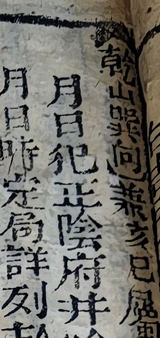 乾山巽向兼亥巳
月日犯正陰府井
月日時定局詳列